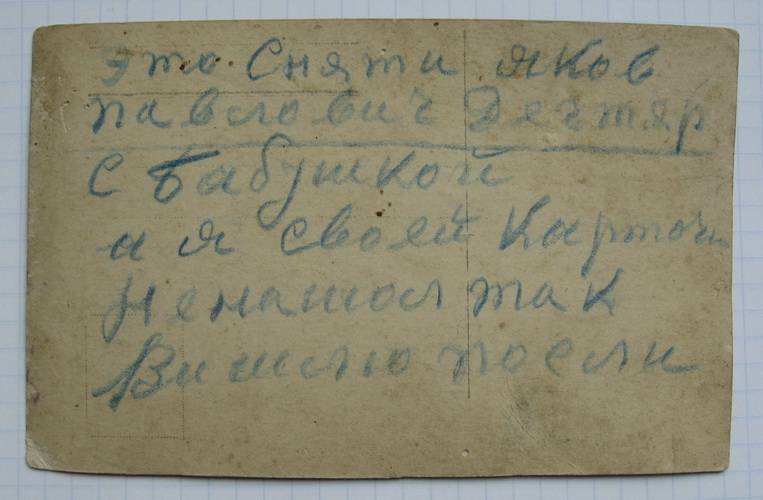 это Сняти яков
павлович Дегтяр
с бабушкой
а я своей Карточи
Ненашол так
Вишлю посли